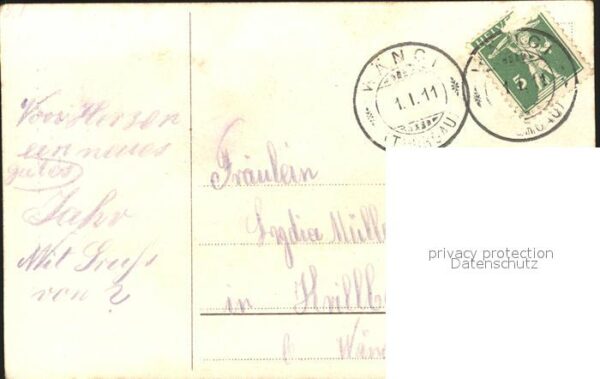 Von Herzen
ein neues
gutes
Jahr
Mit Gruß
von ?
WÄNGI
1.1.11
(THURGAU)
HELV
5
WÄNGI
1.1.11
Fräulein
Lydia Mülle
in
b Wän
privacy protection
Datenschutz